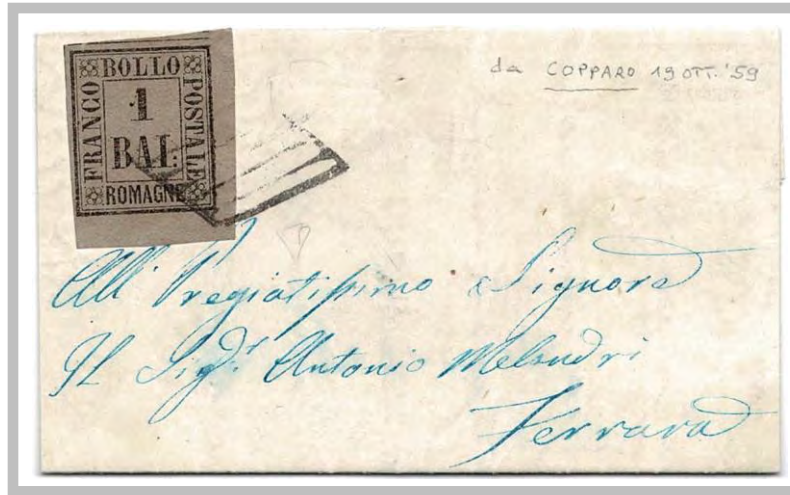 BOLLO
FRANCO
POSTALE
1
BAI:
ROMAGNE
da COPPARO 19 OTT. '59
All' Pregiatissimo Signore
Il Sigr. Antonio Melandri
Ferrara